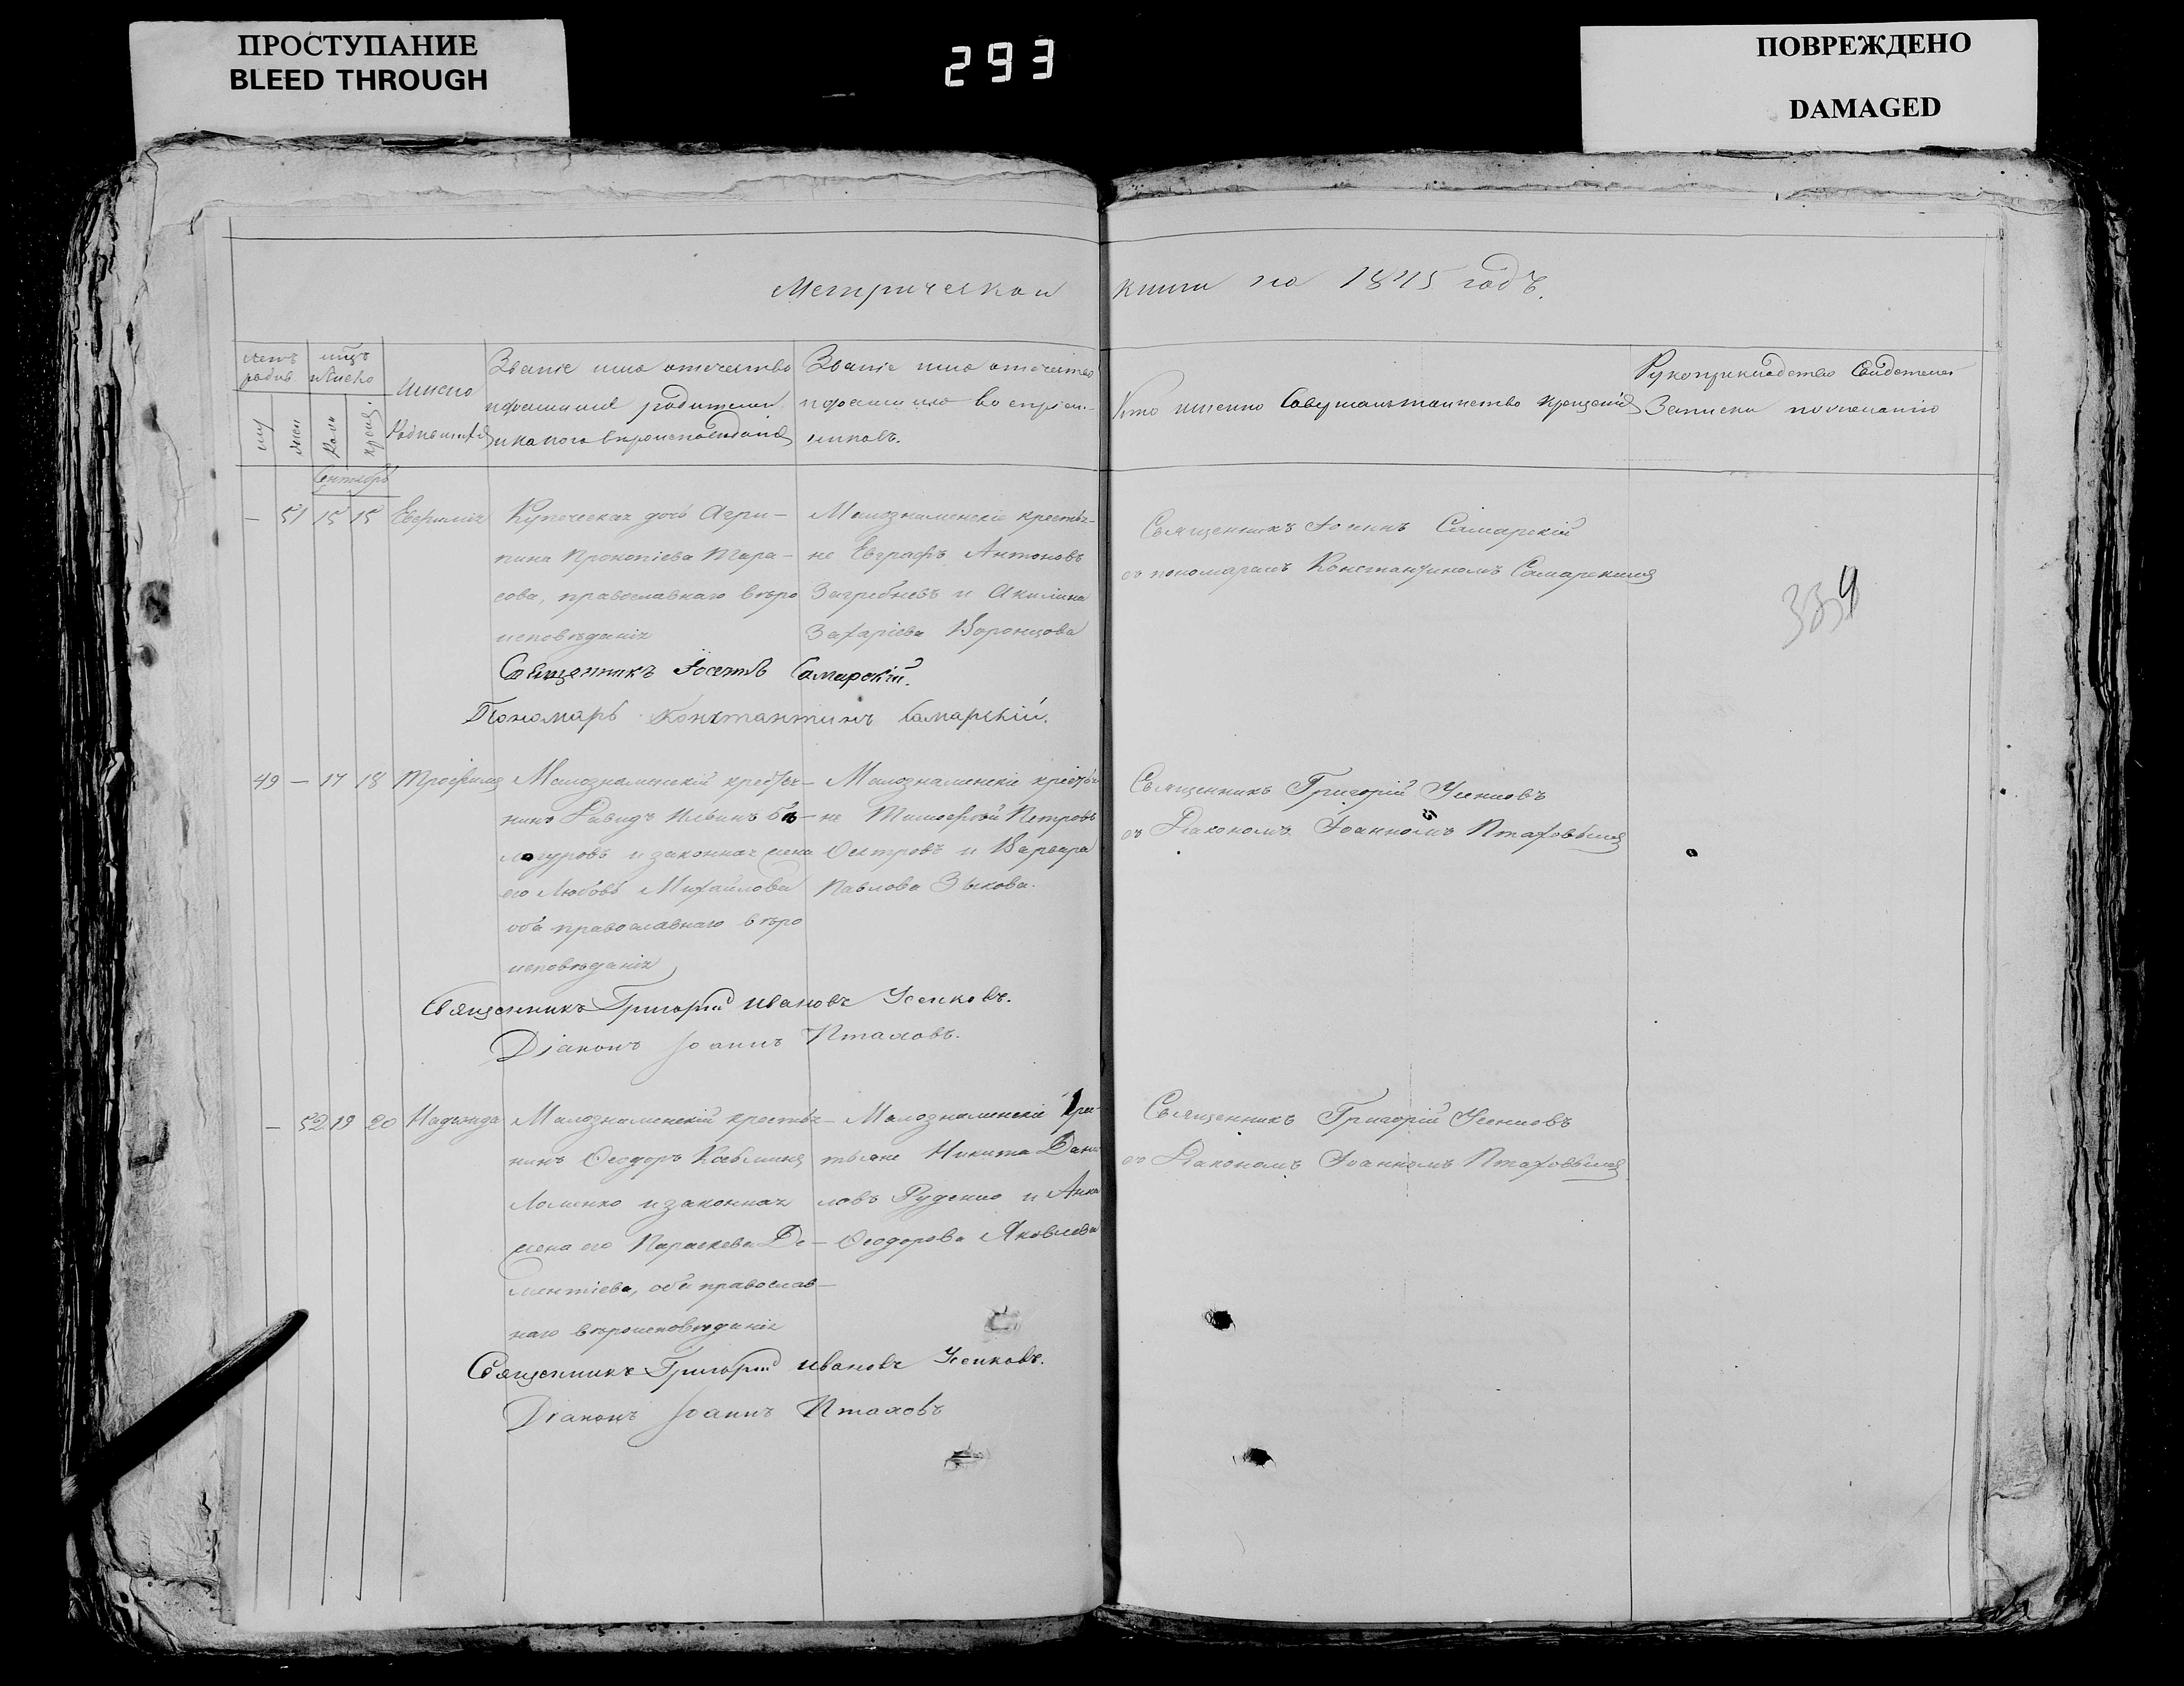 ПРОСТУПАНИЕ
BLEED THROUGH
293
ПОВРЕЖДЕНО
DAMAGED
Метрической книги на 1845 годъ.
Имена
Званіе имя отечество
и фамиліи родителей
и какого вѣроисповѣданія
Званіе имя отечество
и фамилія воспріем-
никовъ.
Кто именно совершалъ таинство крещенія
Рукоприкладство свидетелей
записи по желанію
Сентябрь
— 51 15 15 Евфимія
Купеческая дочь Агри-
пина Прокопіева Тара-
сова, православнаго вѣро
исповѣданія
Малознаменскіе крестья-
не Евграфъ Антоновъ
Загребневъ и Акилина
Захаріева Воронцова
Священникъ Іоаннъ Самарскій
съ пономаремъ Константиномъ Самарскимъ
339
Священникъ Самарскій.
Пономарь Константинъ Самарскій.
49 — 17 18 Трофимъ
Малознаменскій крестья-
нинъ Давидъ Ильинъ Бѣ-
логуровъ и законная жена
его Любовь Михайлова
оба православнаго вѣро
исповѣданія
Малознаменскіе крестья-
не Тимофей Петровъ
Островъ и Варвара
Павлова Зыкова.
Священникъ Григорій Усенковъ
съ Діакономъ Іоанномъ Птаховымъ
Священникъ Григорій Ивановъ Усенковъ.
Діаконъ Іоаннъ Птаховъ.
— 52 19 20 Надежда
Малознаменскій крестья-
нинъ Ѳеодоръ Козьминъ
Ломенко и законная
жена его Параскева Де-
ментіева, оба православ-
наго вѣроисповѣданія
Малознаменскіе кре-
стьяне Никита Дани
ловъ Руденко и Анна
Ѳеодорова Яковлева
Священникъ Григорій Усенковъ
съ Діакономъ Іоанномъ Птаховымъ
Священникъ Григорій Ивановъ Усенковъ.
Діаконъ Іоаннъ Птаховъ